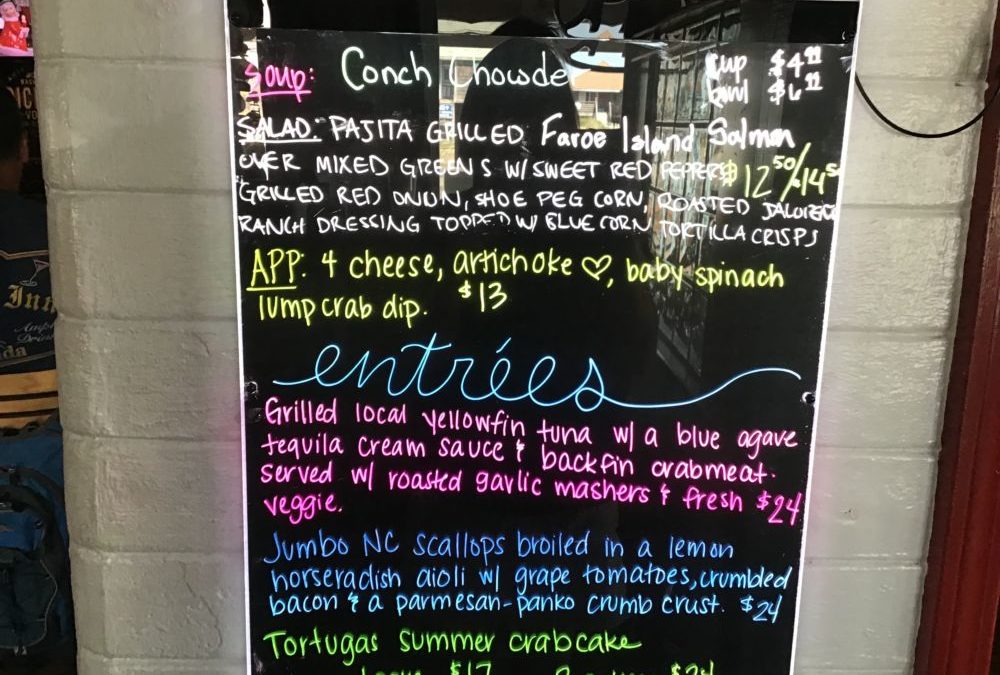 Soup: Conch Chowde
Cup $4.99
bowl $6.99
SALAD: FAJITA GRILLED Faroe Island Salmon
OVER MIXED GREENS W/ SWEET RED PEPPERS $12.50/$14.50
GRILLED RED ONION, SHOE PEG CORN, ROASTED JALOPENO
RANCH DRESSING TOPPED W/ BLUE CORN TORTILLA CRISPS
APP: 4 cheese, artichoke ♡, baby spinach
lump crab dip. $13
entrées
Grilled local yellowfin tuna w/ a blue agave
tequila cream sauce & backfin crabmeat.
served w/ roasted garlic mashers & fresh $24
veggie.
Jumbo NC scallops broiled in a lemon
horseradish aioli w/ grape tomatoes, crumbled
bacon & a parmesan-panko crumb crust. $24
Tortugas summer crabcake
$17 $24
Inn